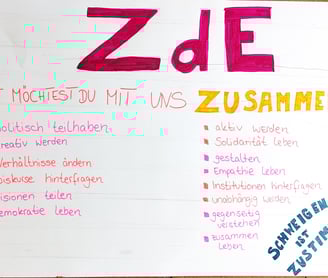 ZdE
MÖCHTEST DU MIT UNS ZUSAMME
politisch teilhaben
kreativ werden
Verhältnisse ändern
Diskurse hinterfragen
isionen teilen
emokratie leben
aktiv werden
Solidarität leben
gestalten
Empathie leben
Institutionen hinterfragen
unabhängig werden
gegenseitig
verstehen
zusammen
leben
SCHWEIGEN
IST
ZUSTIM